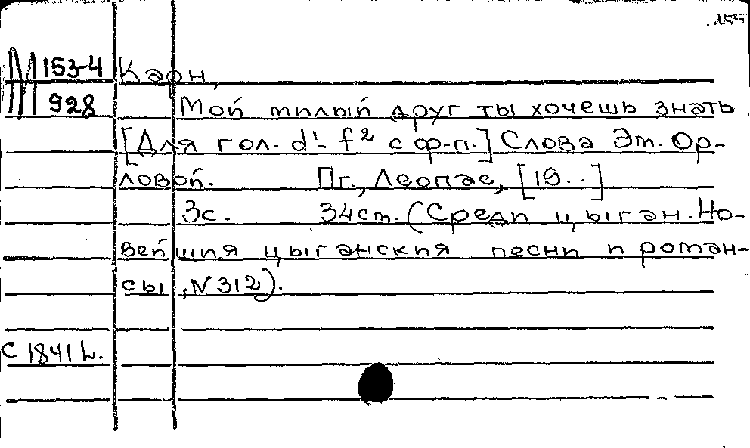 М 153-4 Каон,
928 Мой милый друг ты хочешь знать
[Для гол. d¹- f² с ф-п.] Слова Эт. Ор-
ловой. Пг., Леопас, [19..]
3с. 34ст. (Среди цыган. Но-
вейшия цыганския песни и роман-
сы, N 312).
С 1841 L.